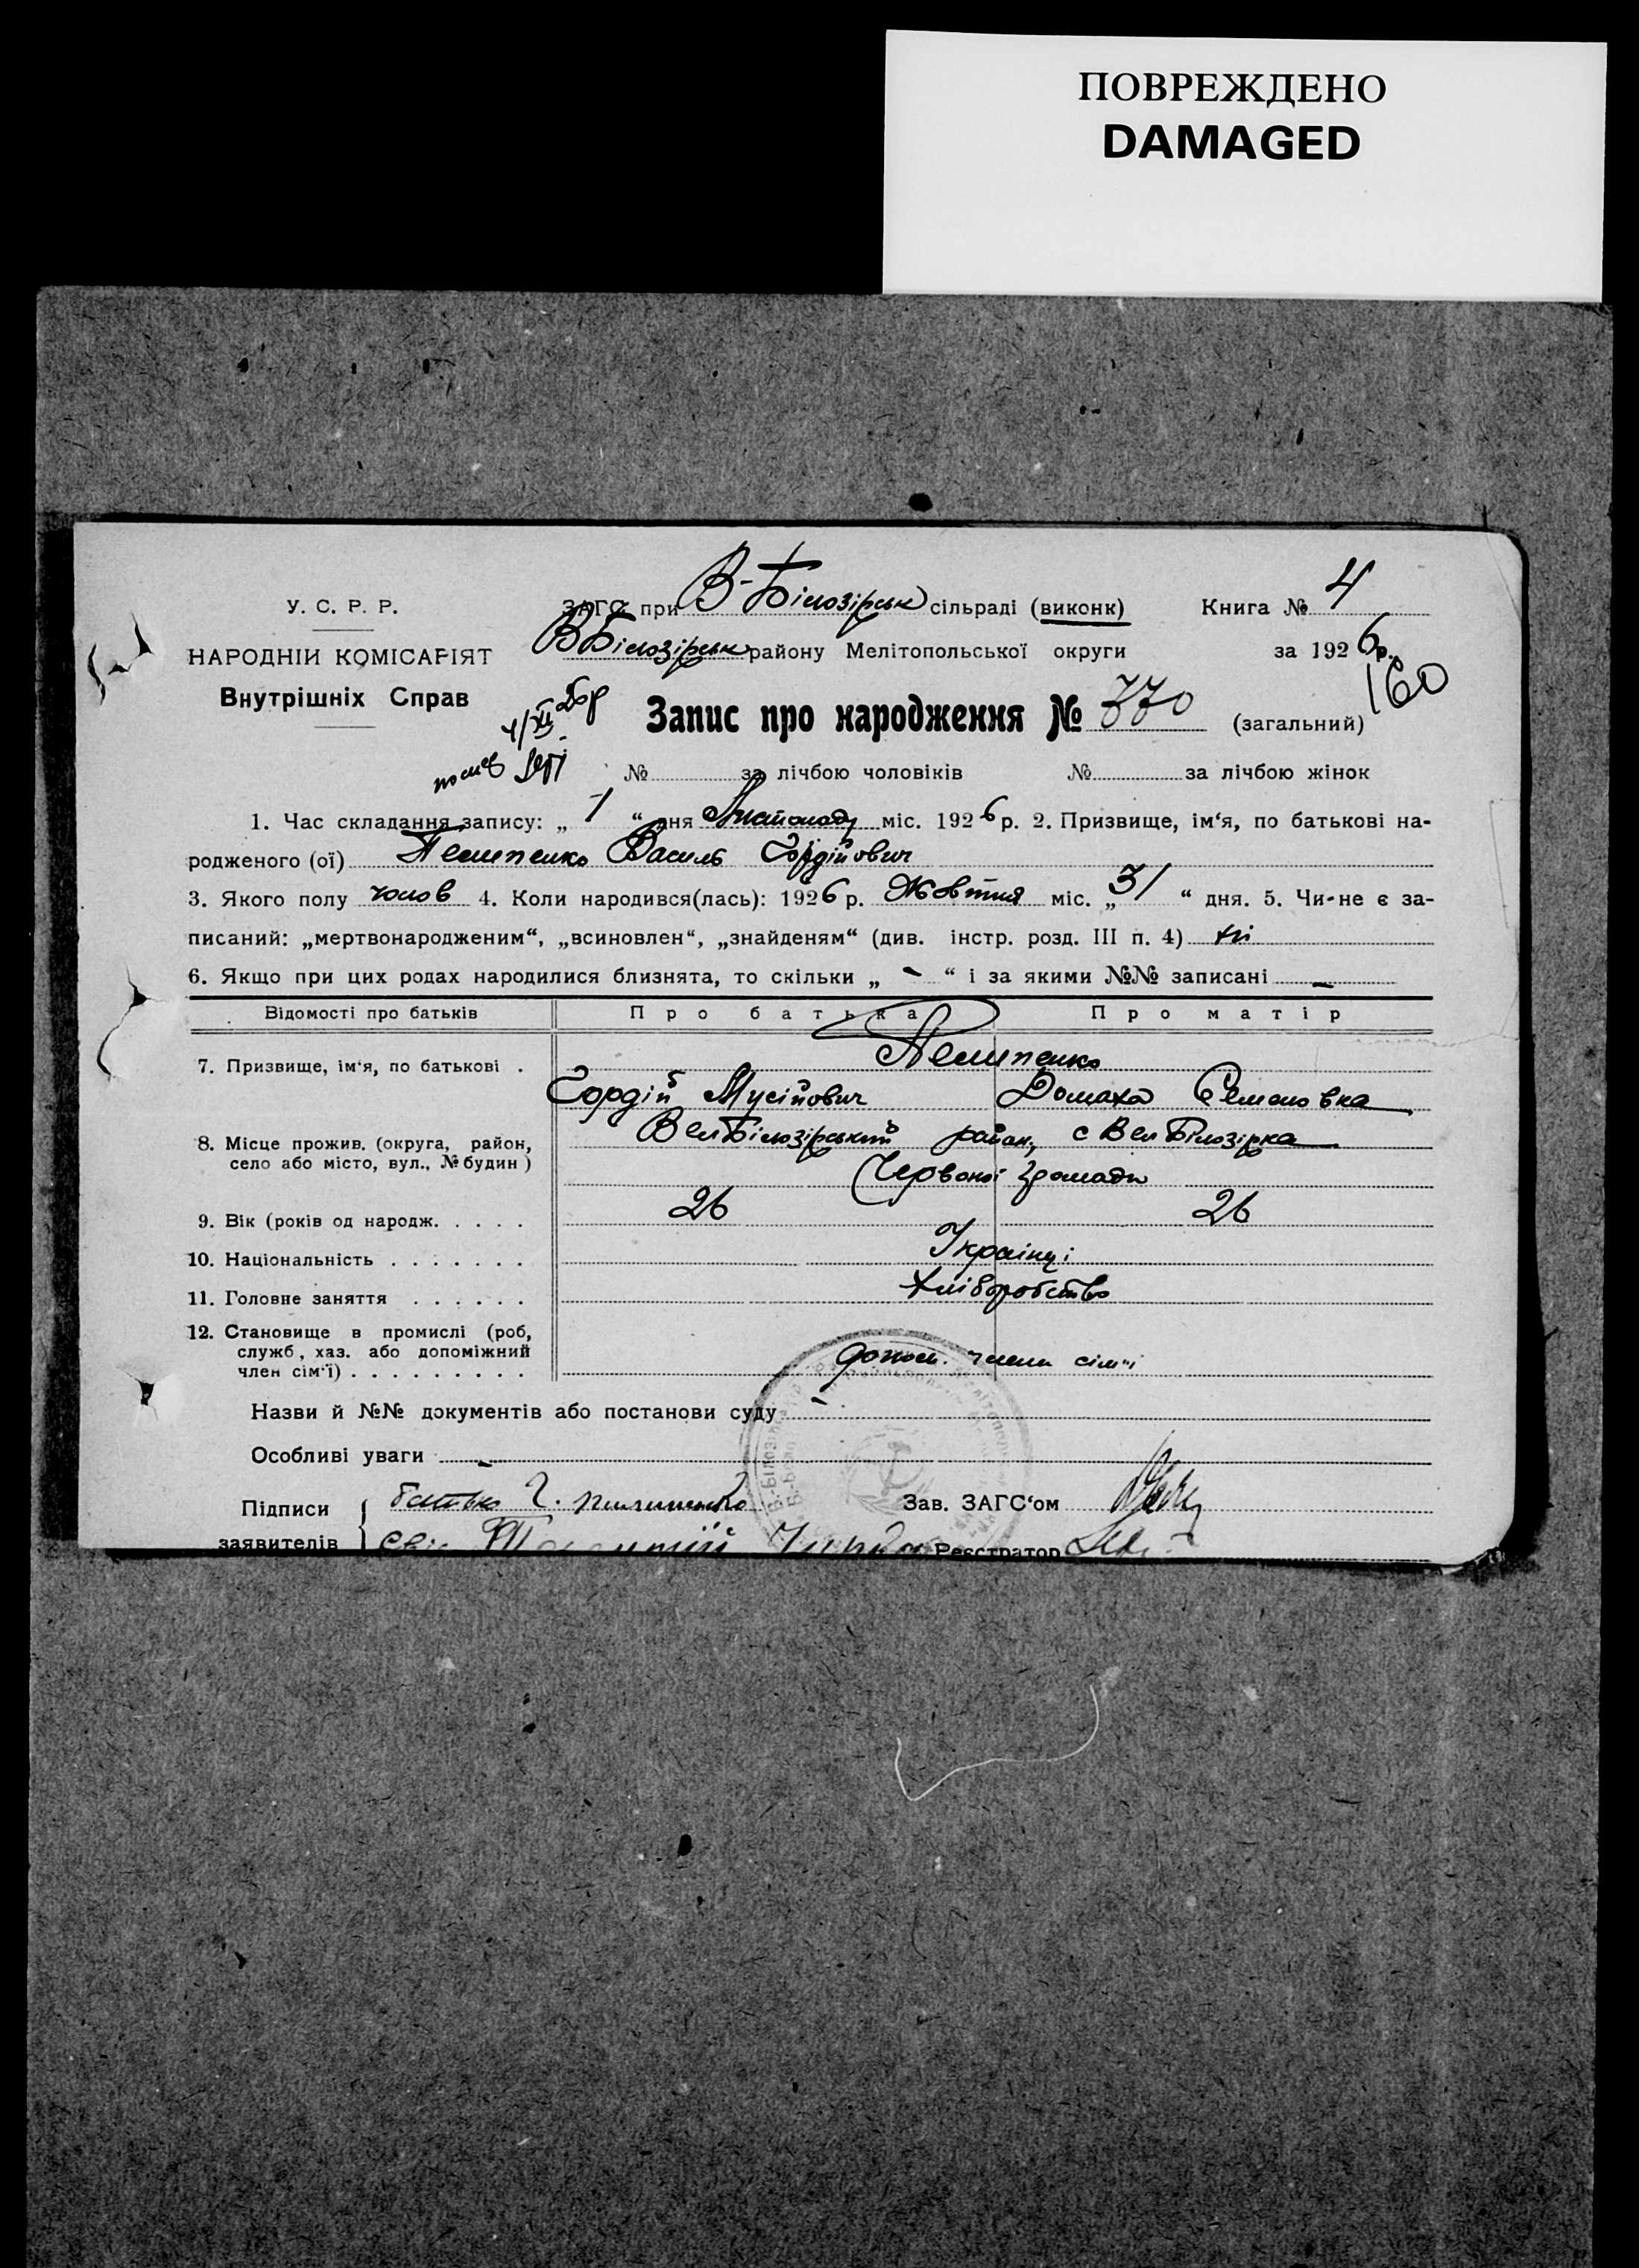 ПОВРЕЖДЕНО
DAMAGED
У. С. Р. Р.
НАРОДНІЙ КОМІСАРІЯТ
Внутрішніх Справ
ЗАГС при В-Білозірськ сільраді (виконк) Книга № 4
ВБілозірськ району Мелітопольської округи за 1926 р.
160
Запис про народження № 770 (загальний)
4/XI
№ за лічбою чоловіків № за лічбою жінок
1. Час складання запису: „ 1 “ дня Листопаду міс. 1926 р. 2. Призвище, ім‘я, по батькові на-
родженого (ої) Пелипенко Василь Гордійович
3. Якого полу чолов 4. Коли народився(лась): 1926 р. Жовтня міс. „ 31 “ дня. 5. Чи-не є за-
писаний: „мертвонародженим“, „всиновлен“, „знайденям“ (див. інстр. розд. III п. 4) ні
6. Якщо при цих родах народилися близнята, то скільки „ - “ і за якими №№ записані -
Відомості про батьків Про батька Про матір
7. Призвище, ім‘я, по батькові . Пелипенко
Гордій Мусійович Домаха Семеновка
8. Місце прожив. (округа, район, село або місто, вул., № будин) ВелБілозірський район, с Вел Білозірка
Червоної Громади
9. Вік (років од народж. . . . . 26 26
10. Національність . . . . . . . Українці
11. Головне заняття . . . . . . Хліборобство
12. Становище в промислі (роб, служб, хаз. або допоміжний член сім‘ї) . . . . . . . . . допом. члени сім'ї
Назви й №№ документів або постанови суду -
Особливі уваги -
Підписи батько Г. Пилипенко Зав. ЗАГС‘ом
заявителів Реєстратор